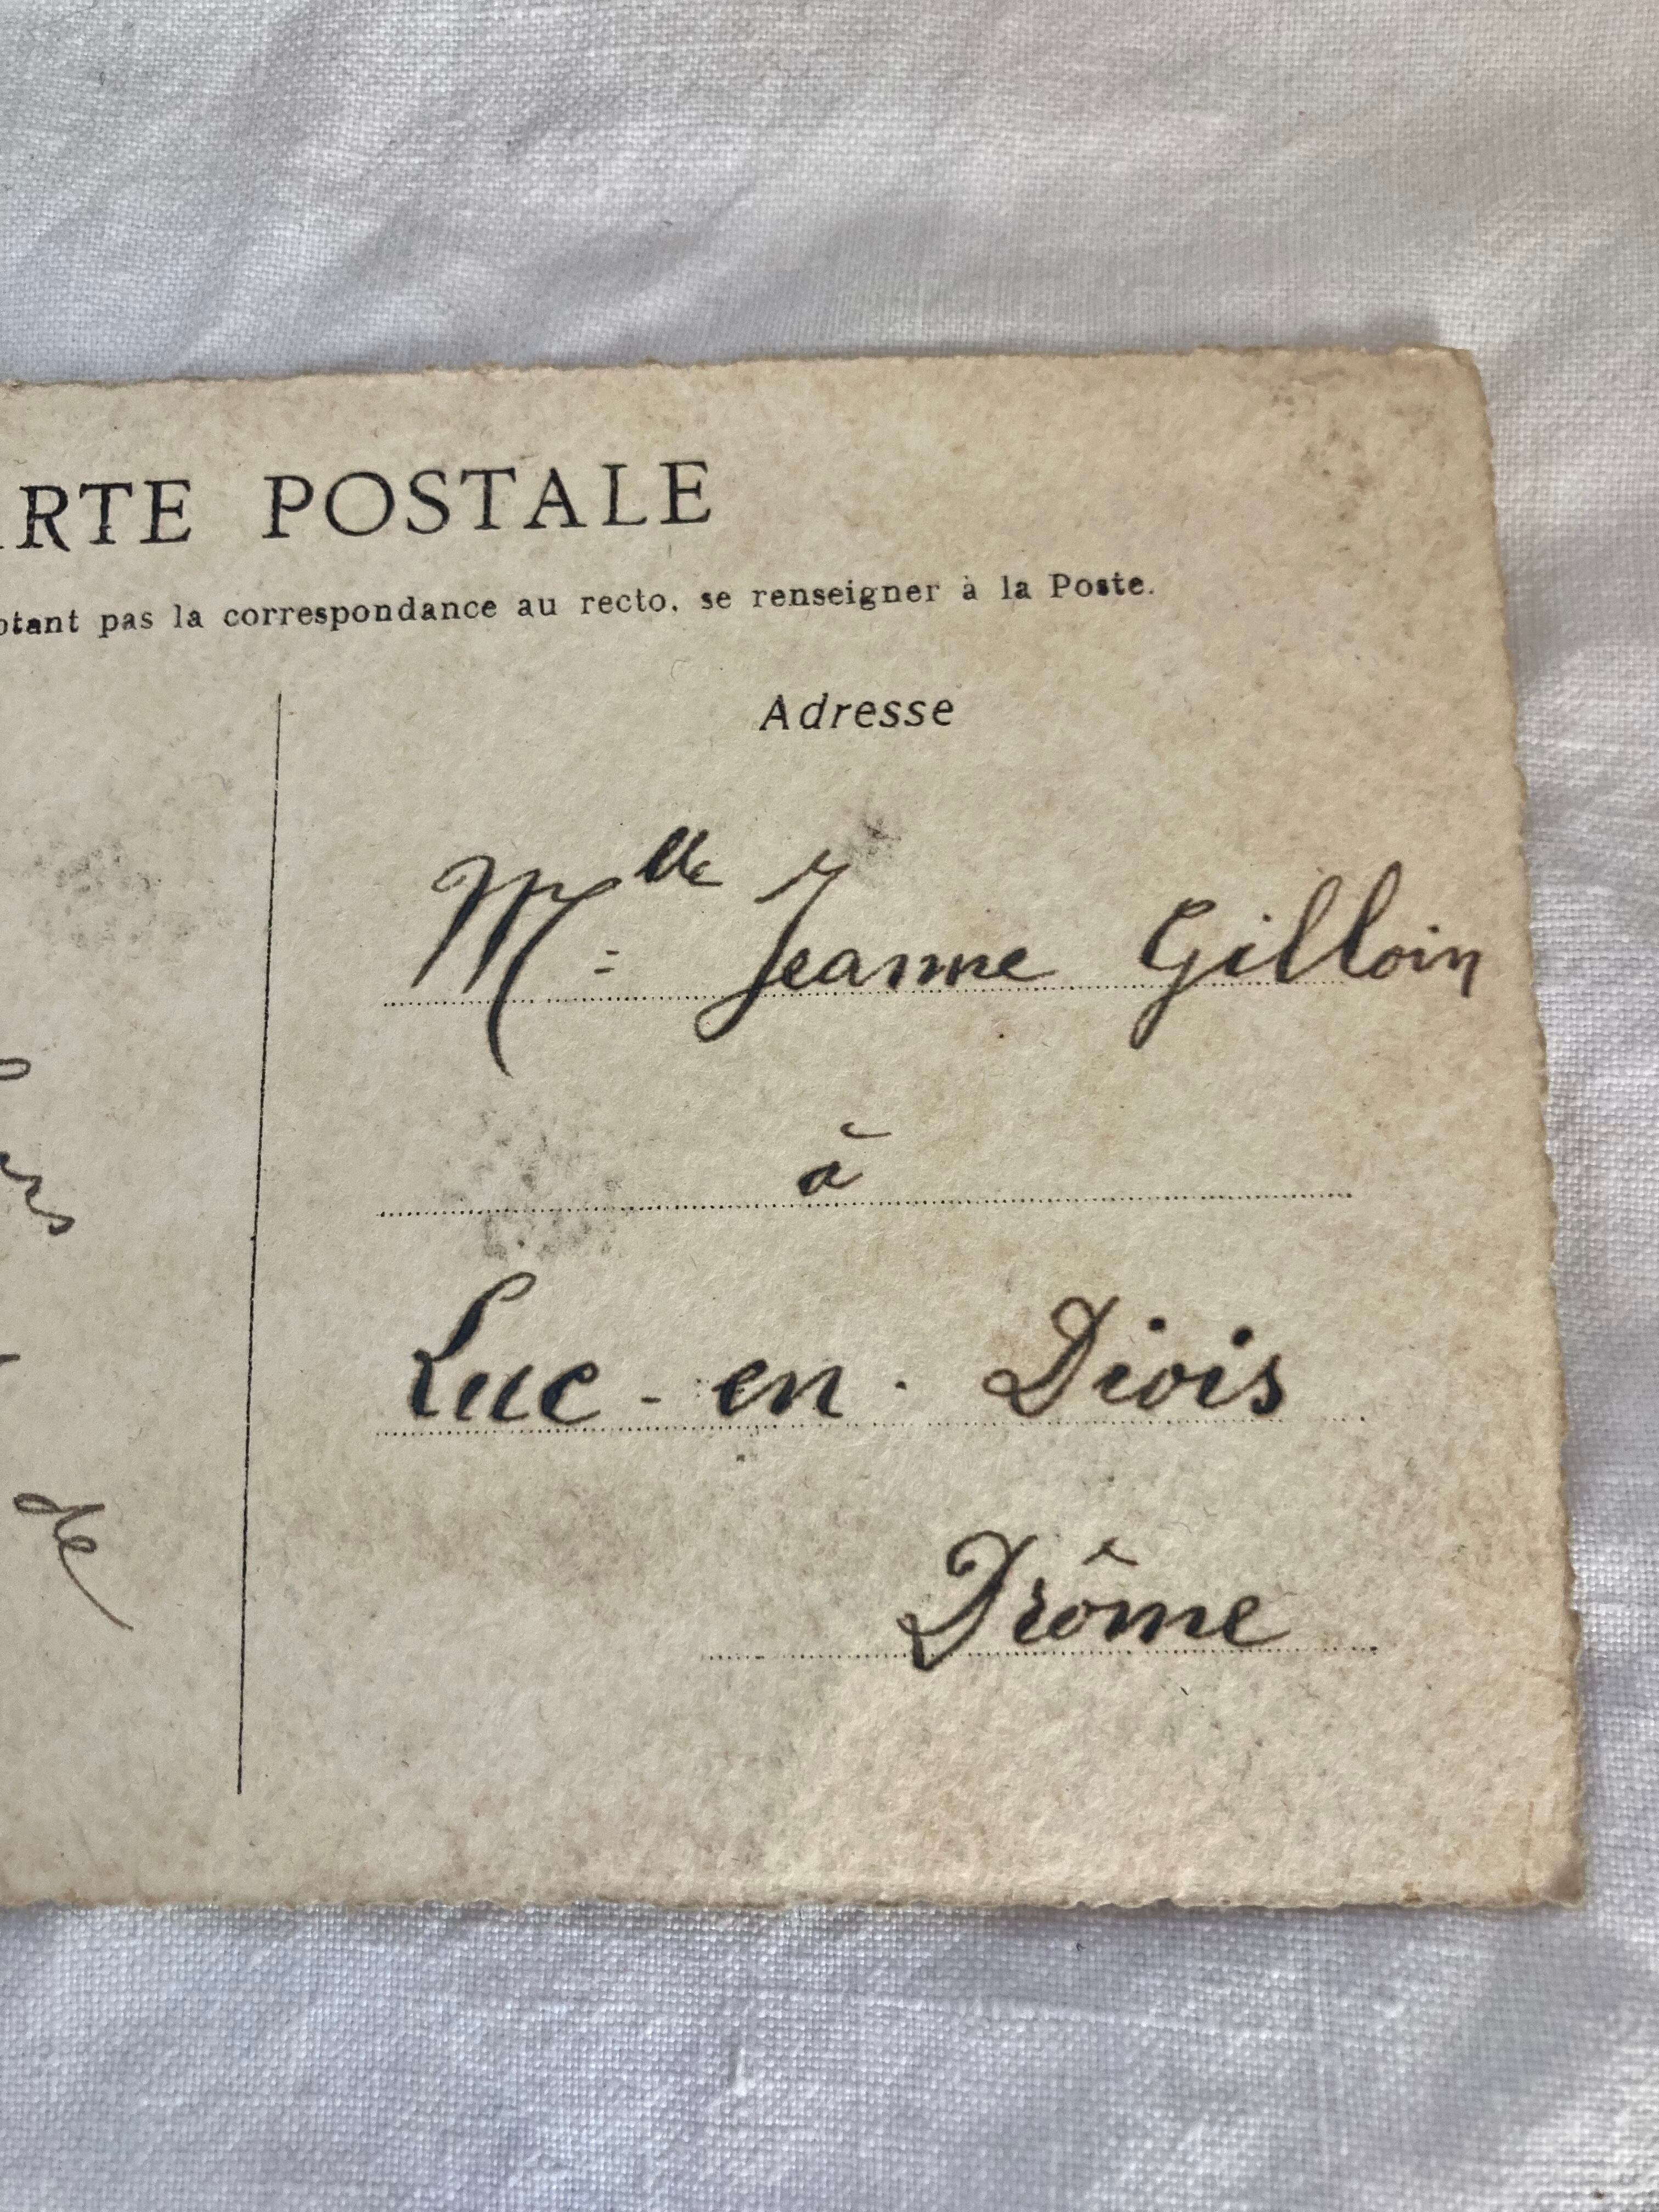 ARTE POSTALE
ptant pas la correspondance au recto, se renseigner à la Poste.
Adresse
Mlle = Jeanne Gilloin
à
Luc - en - Diois
Drôme
de